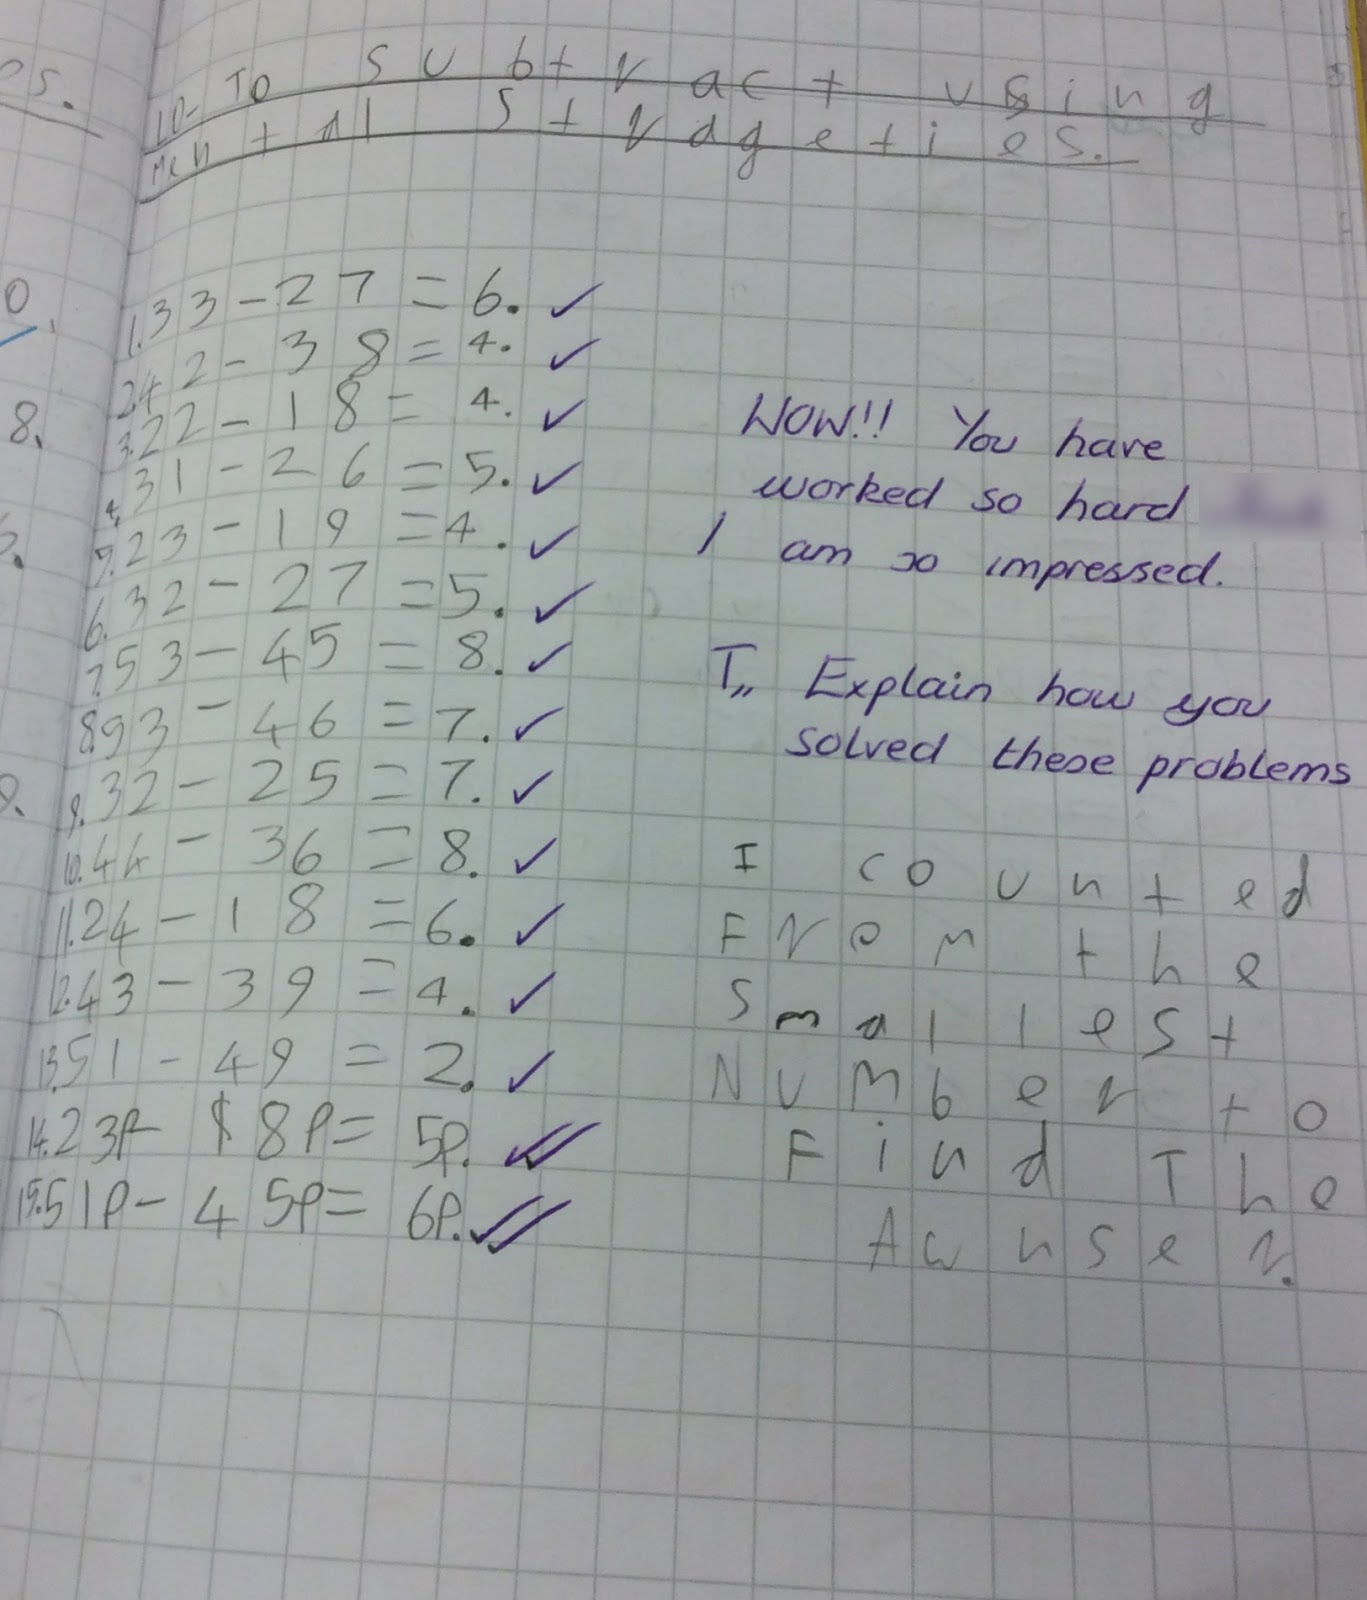 es.
LO- To subtract using
Mental stradgeties.
0.
8.
1. 33 - 27 = 6. ✓
2. 42 - 38 = 4. ✓
3. 22 - 18 = 4. ✓
4. 31 - 26 = 5. ✓
5. 23 - 19 = 4. ✓
6. 32 - 27 = 5. ✓
7. 53 - 45 = 8. ✓
8. 93 - 46 = 7. ✓
9. 32 - 25 = 7. ✓
10. 44 - 36 = 8. ✓
11. 24 - 18 = 6. ✓
12. 43 - 39 = 4. ✓
13. 51 - 49 = 2. ✓
14. 23p - 8p = 5p. ✓✓
15. 51p - 45p = 6p. ✓✓
WOW!! You have
worked so hard
I am so impressed.
T,, Explain how you
solved these problems
I counted
From the
Smallest
Number to
Find The
Awnser.